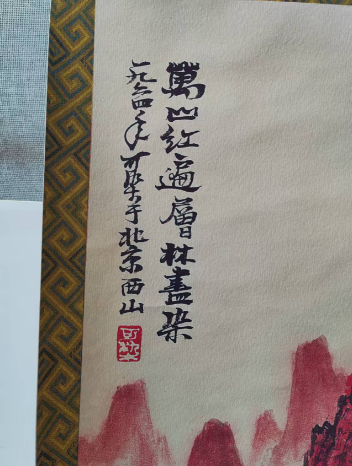 萬山红遍層林盡染
一九六四年可染于北京西山
可染